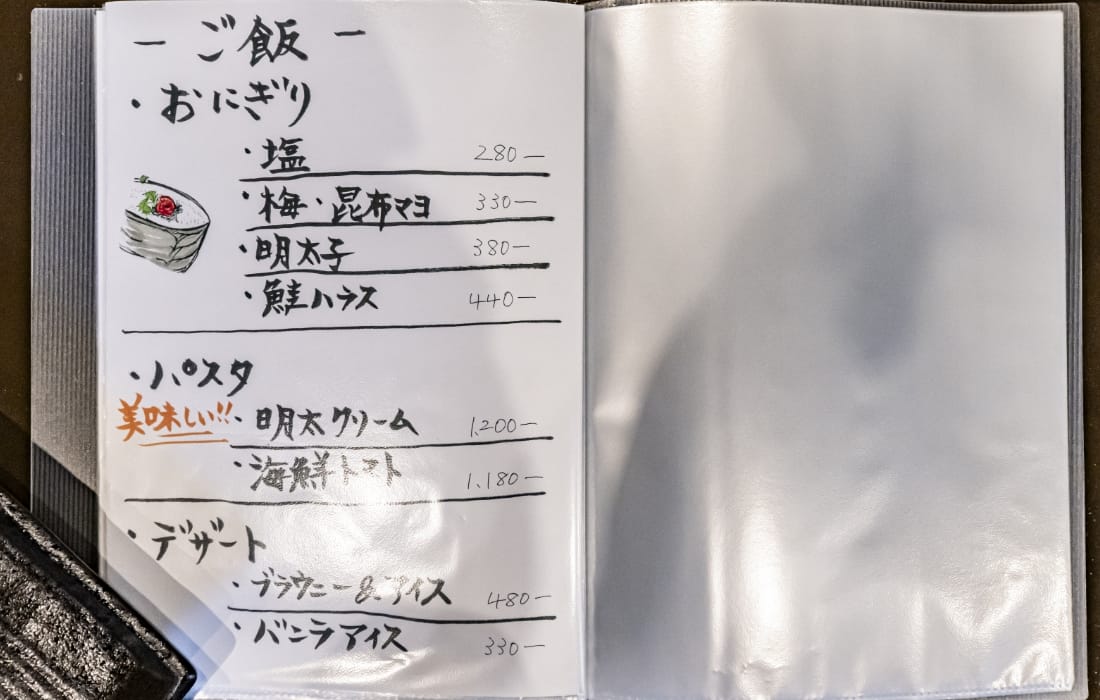 ー ご飯 ー
・おにぎり
・塩 280ー
・梅・昆布マヨ 330ー
・明太子 380ー
・鮭ハラス 440ー
・パスタ
美味しい!!・明太クリーム 1,200ー
・海鮮トマト 1,180ー
・デザート
・ブラウニー&アイス 480ー
・バニラアイス 330ー